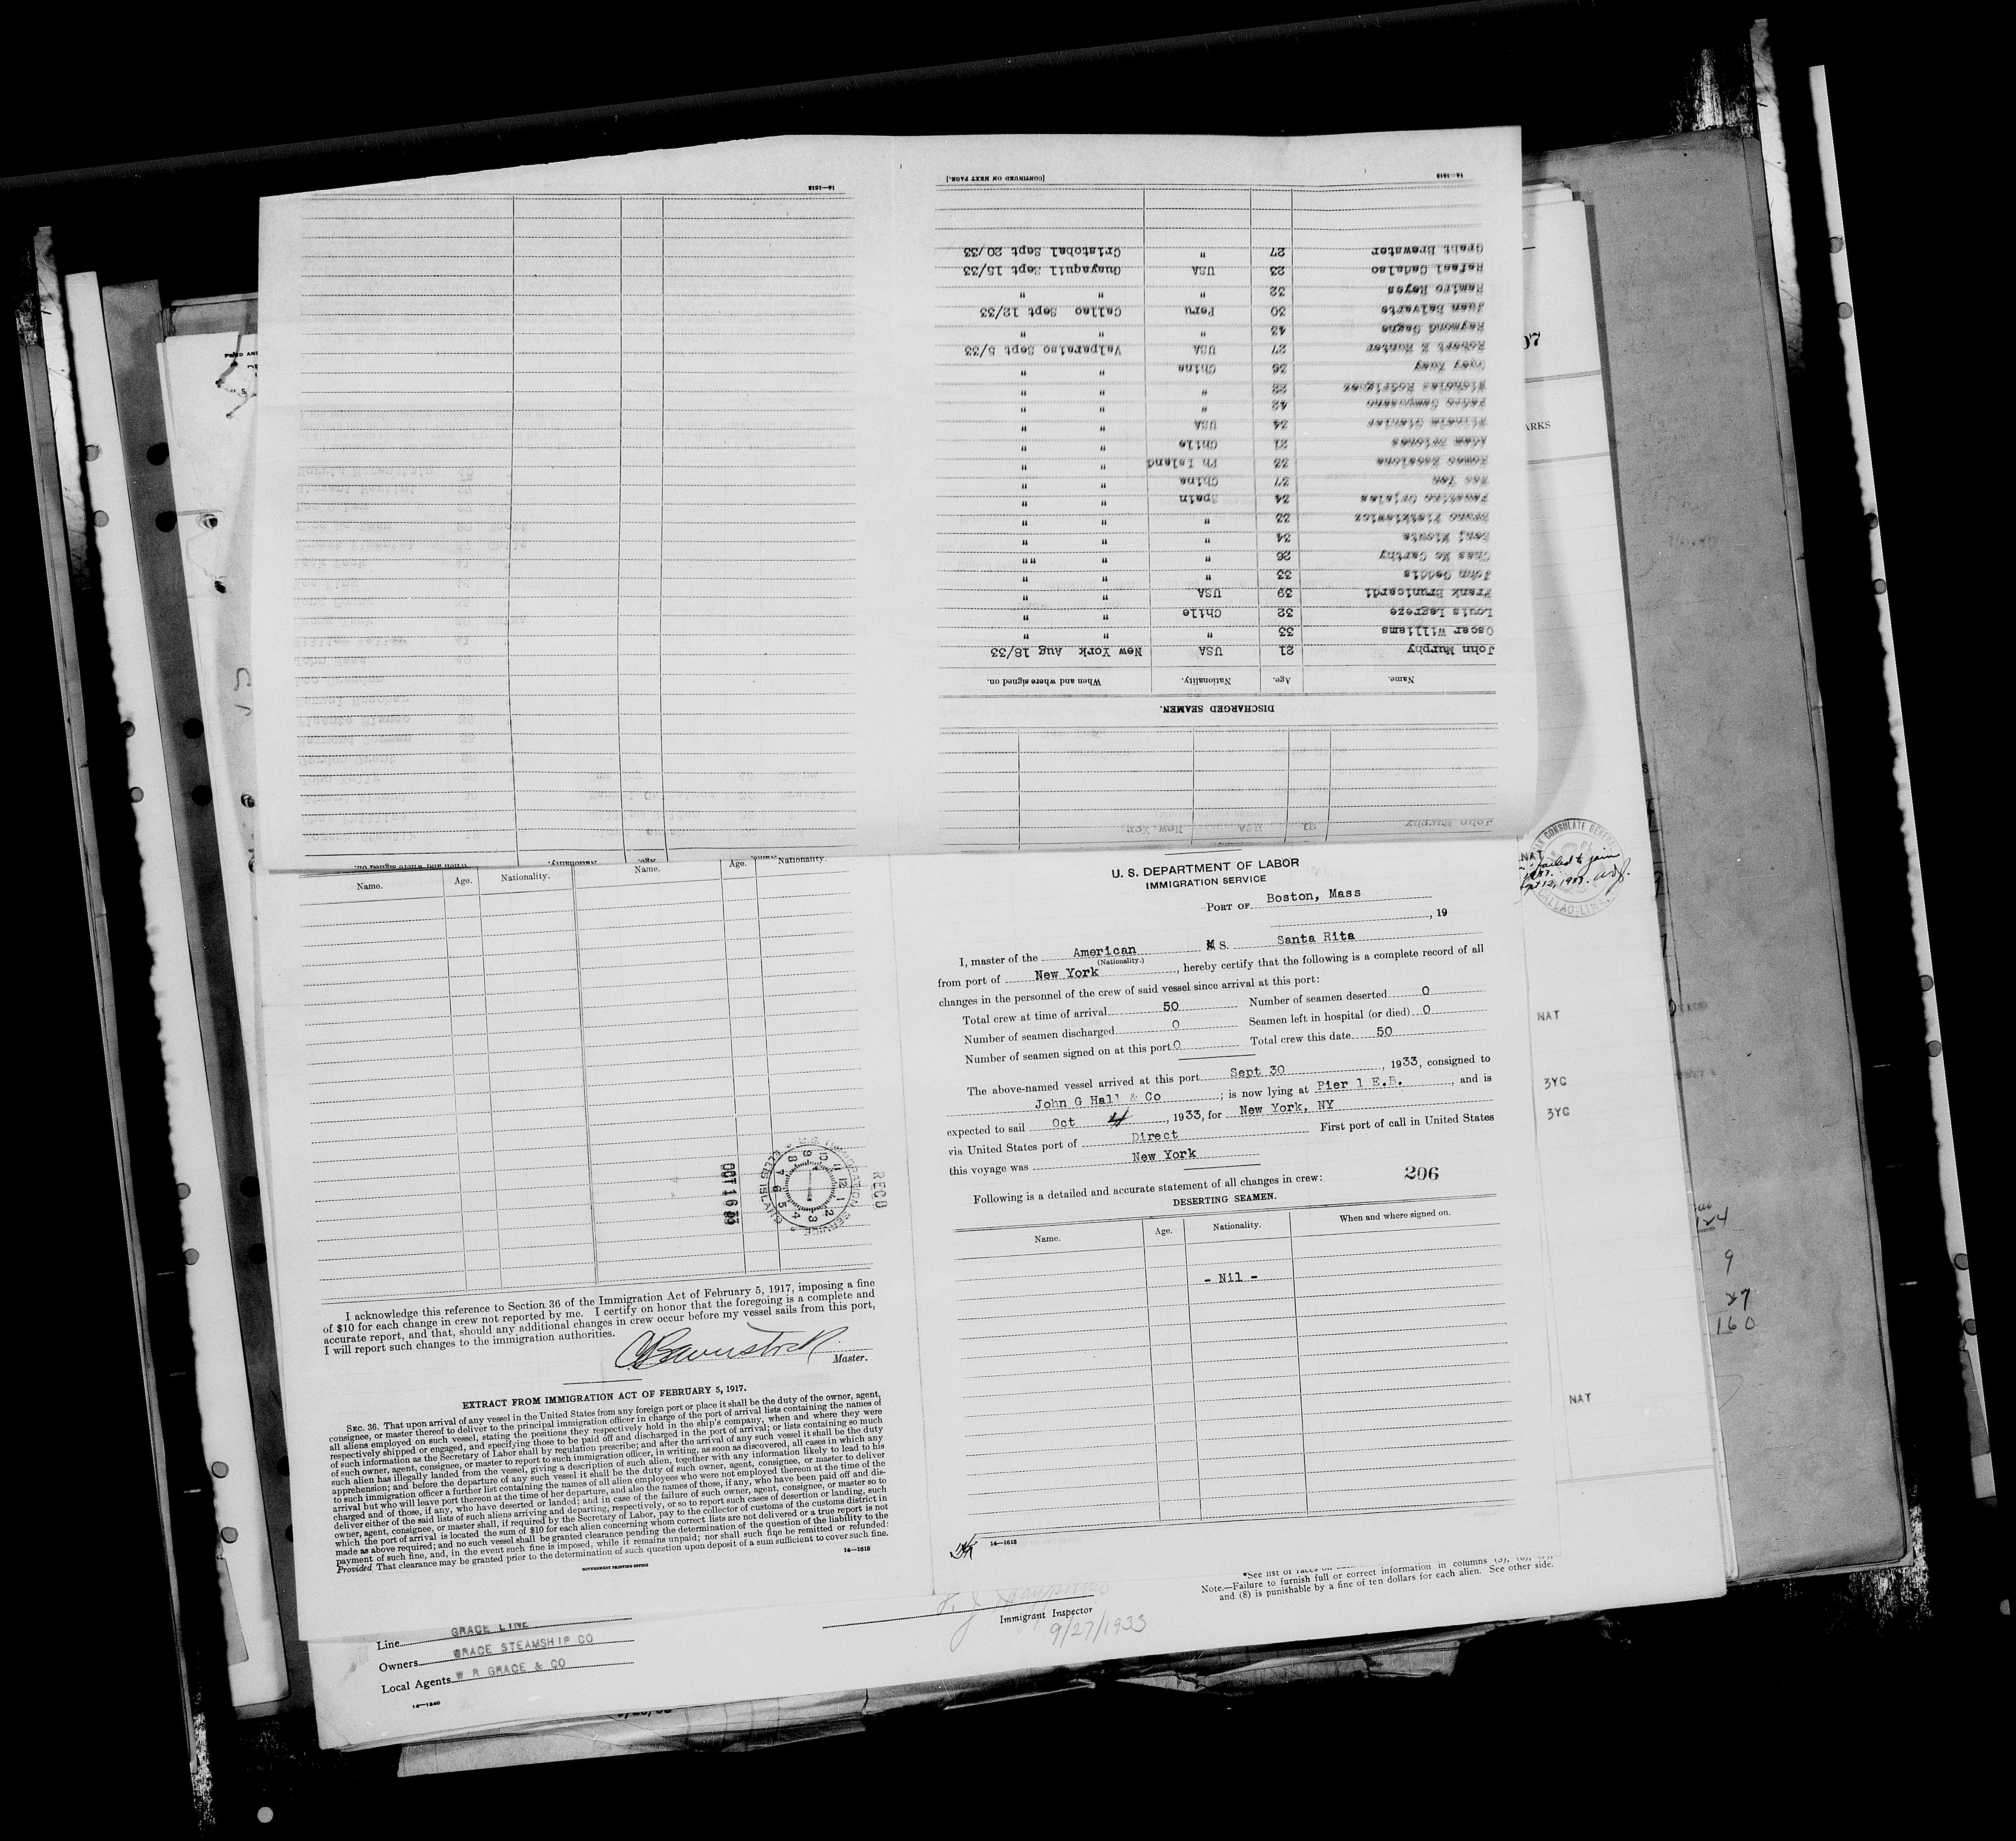 U. S. DEPARTMENT OF LABOR
IMMIGRATION SERVICE
PORT OF Boston, Mass
, 19
I, master of the American M S. Santa Rita
(Nationality.)
from port of New York, hereby certify that the following is a complete record of all
changes in the personnel of the crew of said vessel since arrival at this port:
Total crew at time of arrival 50 Number of seamen deserted 0
Number of seamen discharged 0 Seamen left in hospital (or died) 0
Number of seamen signed on at this port 0 Total crew this date 50
The above-named vessel arrived at this port Sept 30, 1933, consigned to
John G Hall & Co; is now lying at Pier 1 E.B., and is
expected to sail Oct 4, 1933, for New York, NY
via United States port of Direct First port of call in United States
this voyage was New York
206
Following is a detailed and accurate statement of all changes in crew:
DESERTING SEAMEN.
Name. Age. Nationality. When and where signed on.
- Nil -
14—1613
DISCHARGED SEAMEN.
Name. Age. Nationality. When and where signed on.
John Murphy 21 USA New York Aug 18/33
Oscar Williams 33 " " "
Louis Lagreze 32 Chile " "
Frank Brunicardi 39 USA " "
John Geddis 33 " " "
Chas Mc Carthy 26 " " ""
Benj Miouta 34 " " "
Bruno Pietkiewicz 33 " " "
Faustino Grjales 34 Spain " "
Wee Yen 37 China " "
Romeo Escalona 33 Ph Island " "
Adam Briones 21 Chile " "
Wilhelm Giesler 34 USA " "
Pedro Campusano 42 " " "
Nicholas Rodriguez 22 " " "
Quey Kuey 36 China " "
Robert E Hunter 27 USA Valparaiso Sept 5/33
Raymond Gagne 43 " " "
Juan Dalvarte 30 Peru Callao Sept 12/33
Ramiro Reyes 32 " " "
Rafael Cadalso 23 USA Guayaquil Sept 15/33
Graht Brewster 27 " Cristobal Sept 20/33
[CONTINUED ON NEXT PAGE.]
14—1613
14—1613
Name. Age. Nationality. Name. Age. Nationality.
REC'D
U.S. IMMIGRATION SERVICE
ELLIS ISLAND
OCT 16 33
I acknowledge this reference to Section 36 of the Immigration Act of February 5, 1917, imposing a fine
of $10 for each change in crew not reported by me. I certify on honor that the foregoing is a complete and
accurate report, and that, should any additional changes in crew occur before my vessel sails from this port,
I will report such changes to the immigration authorities.
Master.
EXTRACT FROM IMMIGRATION ACT OF FEBRUARY 5, 1917.
SEC. 36. That upon arrival of any vessel in the United States from any foreign port or place it shall be the duty of the owner, agent,
consignee, or master thereof to deliver to the principal immigration officer in charge of the port of arrival lists containing the names of
all aliens employed on such vessel, stating the positions they respectively hold in the ship's company, when and where they were
respectively shipped or engaged, and specifying those to be paid off and discharged in the port of arrival; or lists containing so much
of such information as the Secretary of Labor shall by regulation prescribe; and after the arrival of any such vessel it shall be the duty
of such owner, agent, consignee, or master to report to such immigration officer, in writing, as soon as discovered, all cases in which any
such alien has illegally landed from the vessel, giving a description of such alien, together with any information likely to lead to his
apprehension; and before the departure of any such vessel it shall be the duty of such owner, agent, consignee, or master to deliver
to such immigration officer a further list containing the names of all alien employees who were not employed thereon at the time of the
arrival but who will leave port thereon at the time of her departure, and also the names of those, if any, who have been paid off and dis-
charged and of those, if any, who have deserted or landed; and in case of the failure of such owner, agent, consignee, or master so to
deliver either of the said lists of such aliens arriving and departing, respectively, or so to report such cases of desertion or landing, such
owner, agent, consignee, or master shall, if required by the Secretary of Labor, pay to the collector of customs of the customs district in
which the port of arrival is located the sum of $10 for each alien concerning whom correct lists are not delivered or a true report is not
made as above required; and no such vessel shall be granted clearance pending the determination of the question of the liability to the
payment of such fine, and, in the event such fine is imposed, while it remains unpaid; nor shall such fine be remitted or refunded:
Provided That clearance may be granted prior to the determination of such question upon deposit of a sum sufficient to cover such fine.
GOVERNMENT PRINTING OFFICE
14—1613
Line GRACE LINE
Owners GRACE STEAMSHIP CO
Local Agents W R GRACE & CO
14—1240
Immigrant Inspector
9/27/1933
Note.—Failure to furnish full or correct information in columns
and (8) is punishable by a fine of ten dollars for each alien. See other side.
NAT
failed to join
CONSULATE GENERAL
CALLAO-LIMA
NAT
3YC
3YC
NAT
9
27
160